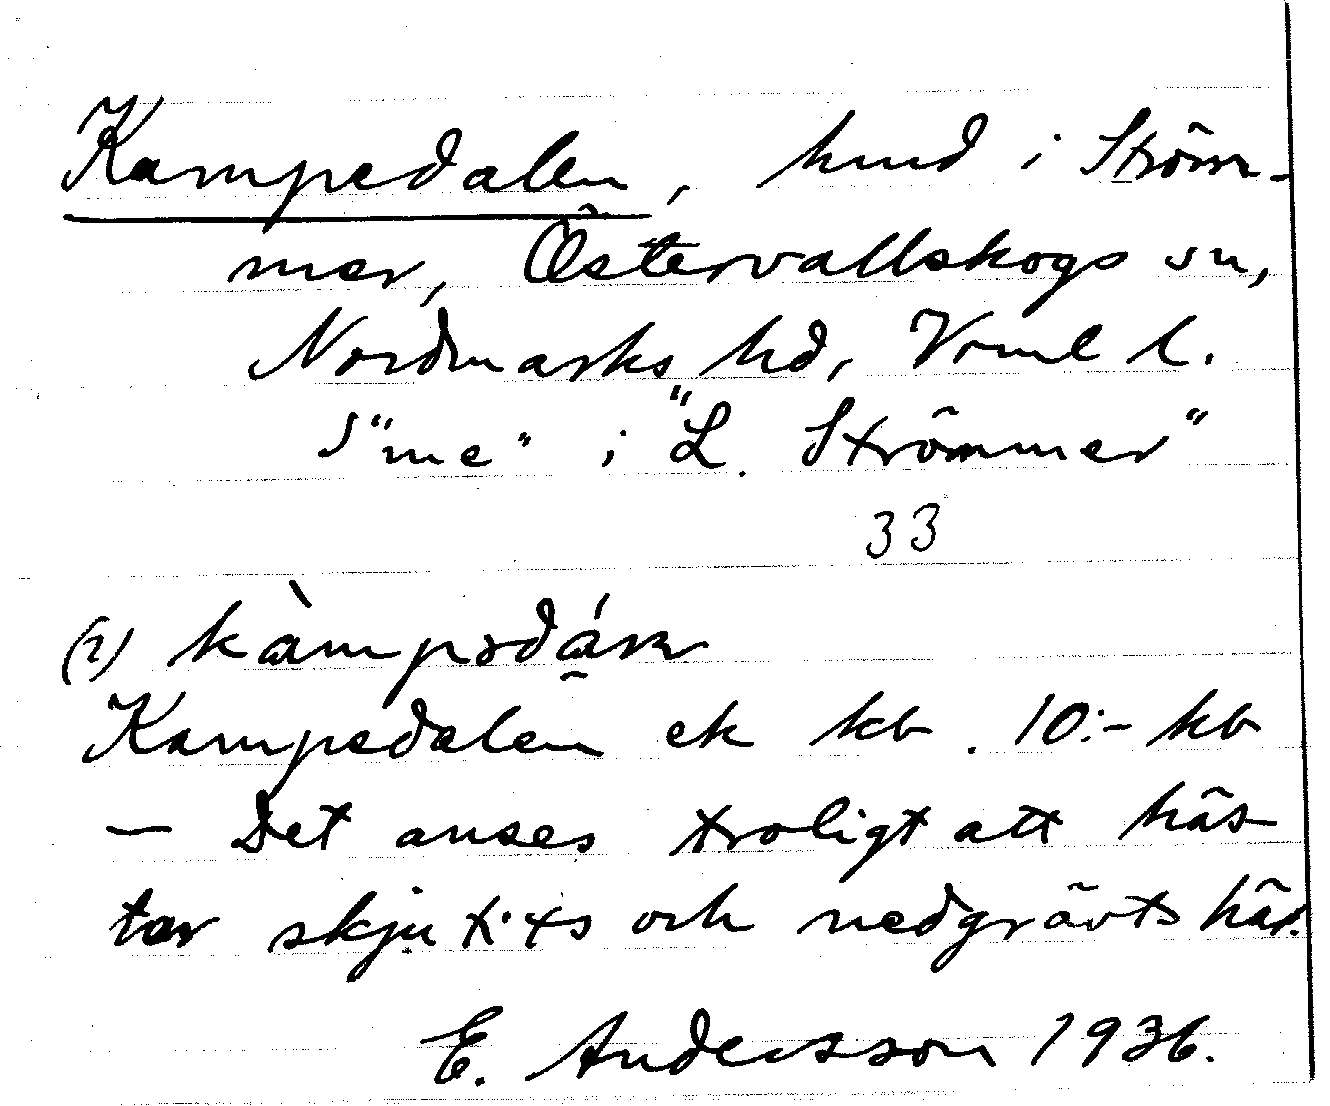 Kampedalen, hmd i Ström-
mer, Östervallskogs sn,
Nordmarks hd, Vrml l.
S "me" i "L. Strömmer"
33
(2) kàmpədáɴ
Kampedalen ek kb. 10:- kb
— Det anses troligt att häs-
tar skjutits och nedgrävts här.
E. Andersson 1936.